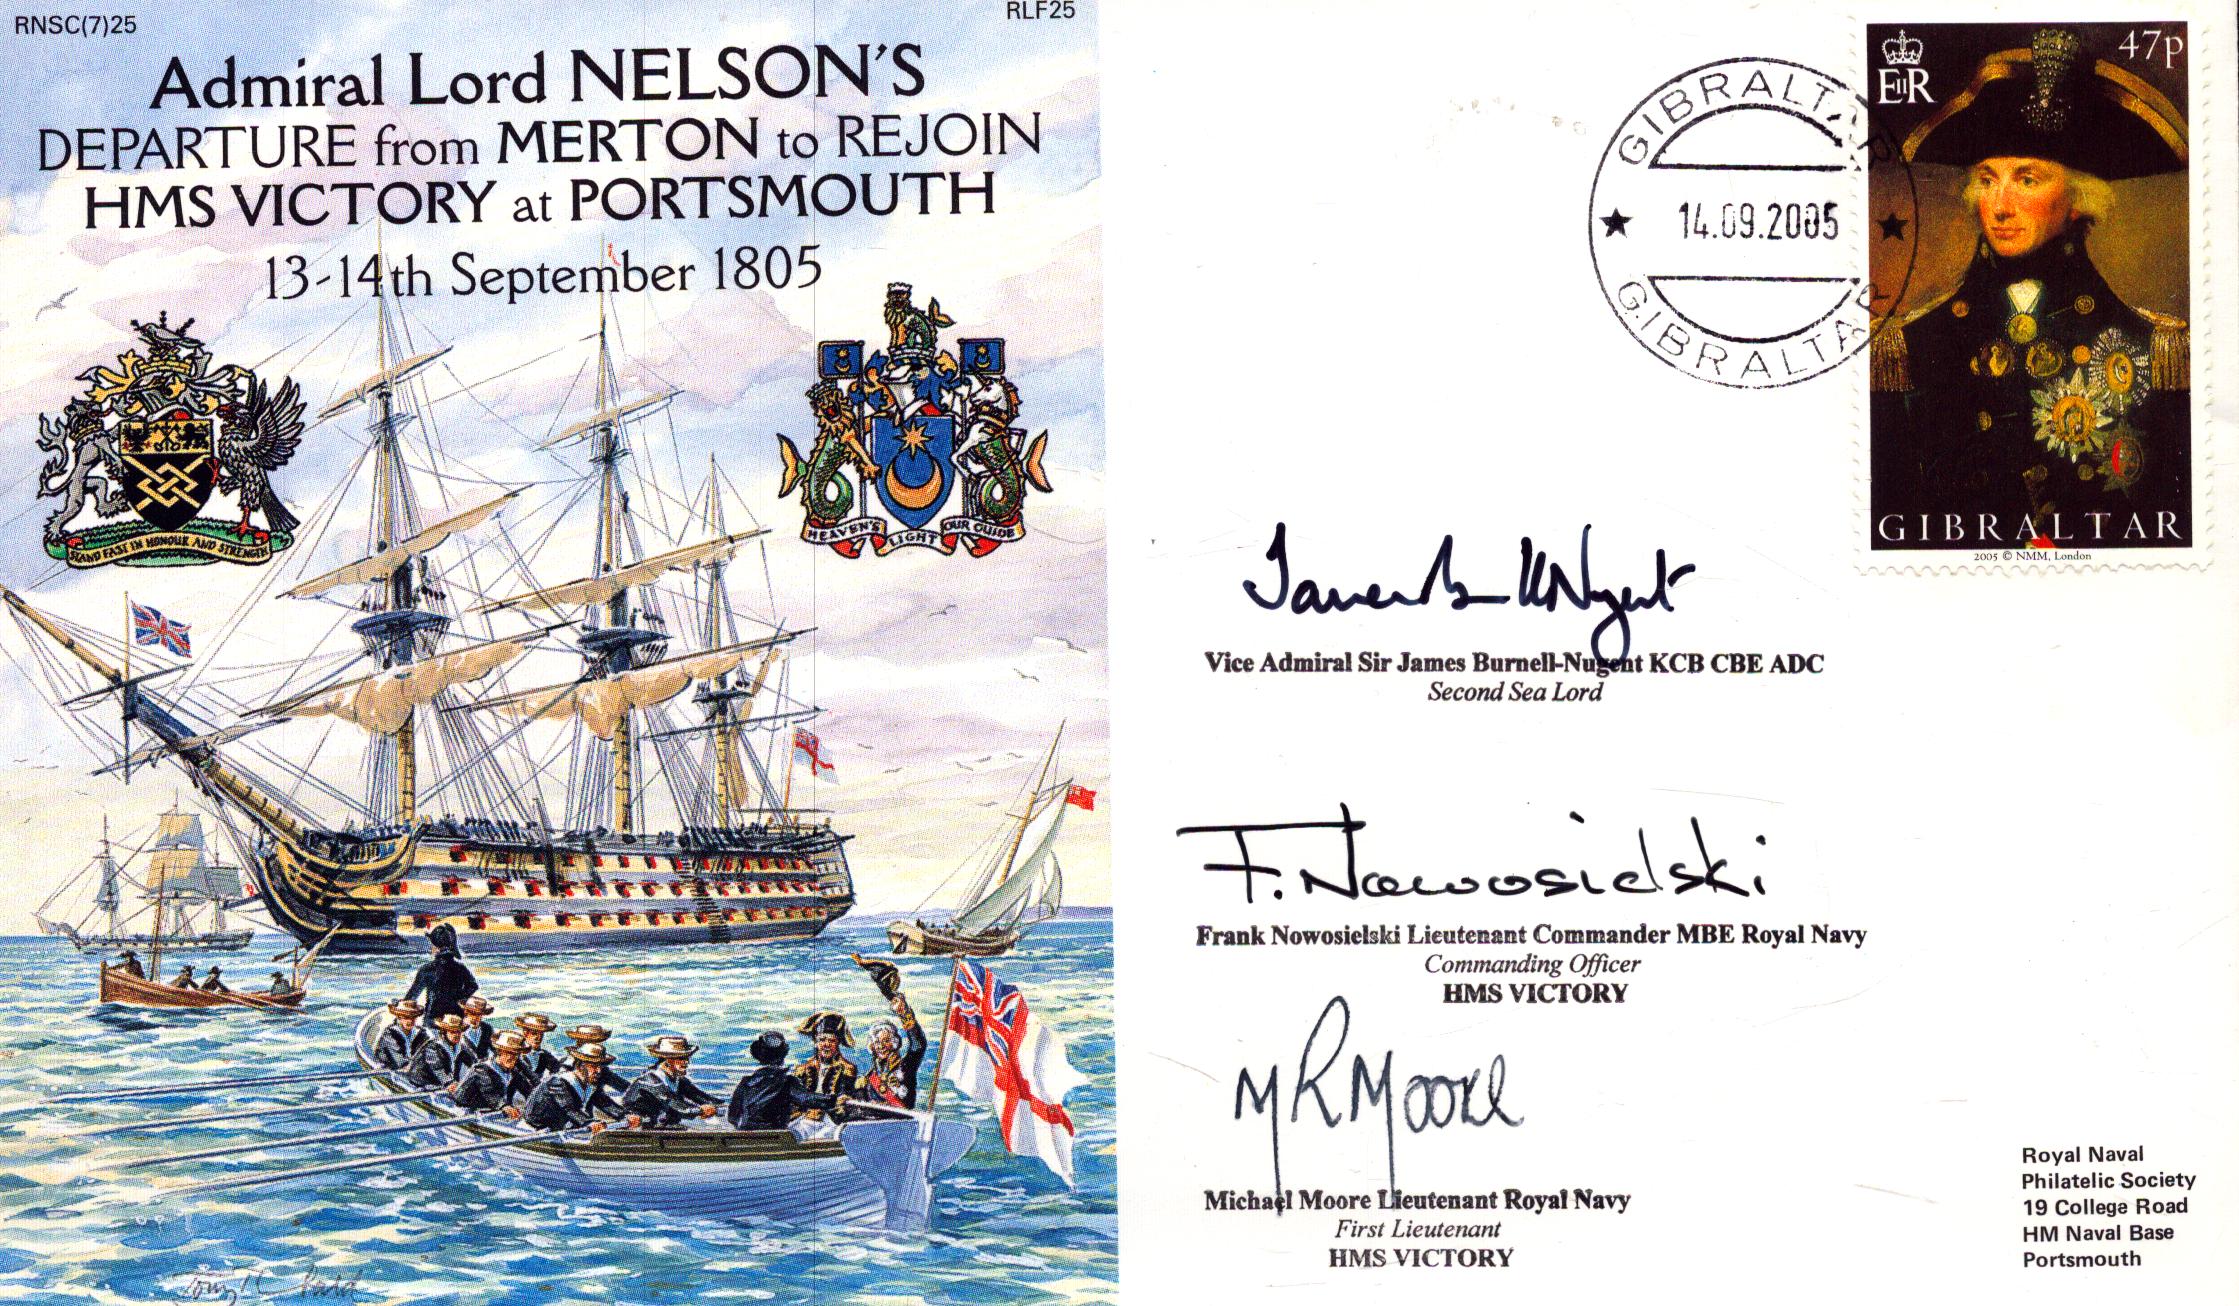 RNSC(7)25
RLF25
Admiral Lord NELSON'S
DEPARTURE from MERTON to REJOIN
HMS VICTORY at PORTSMOUTH
13-14th September 1805
STAND FAST IN HONOUR AND STRENGTH
HEAVEN'S LIGHT OUR GUIDE
GIBRALTAR
14.09.2005
GIBRALTAR
EIIR
47p
GIBRALTAR
2005 © NMM, London
Vice Admiral Sir James Burnell-Nugent KCB CBE ADC
Second Sea Lord
F. Nowosielski
Frank Nowosielski Lieutenant Commander MBE Royal Navy
Commanding Officer
HMS VICTORY
M R Moore
Michael Moore Lieutenant Royal Navy
First Lieutenant
HMS VICTORY
Royal Naval
Philatelic Society
19 College Road
HM Naval Base
Portsmouth